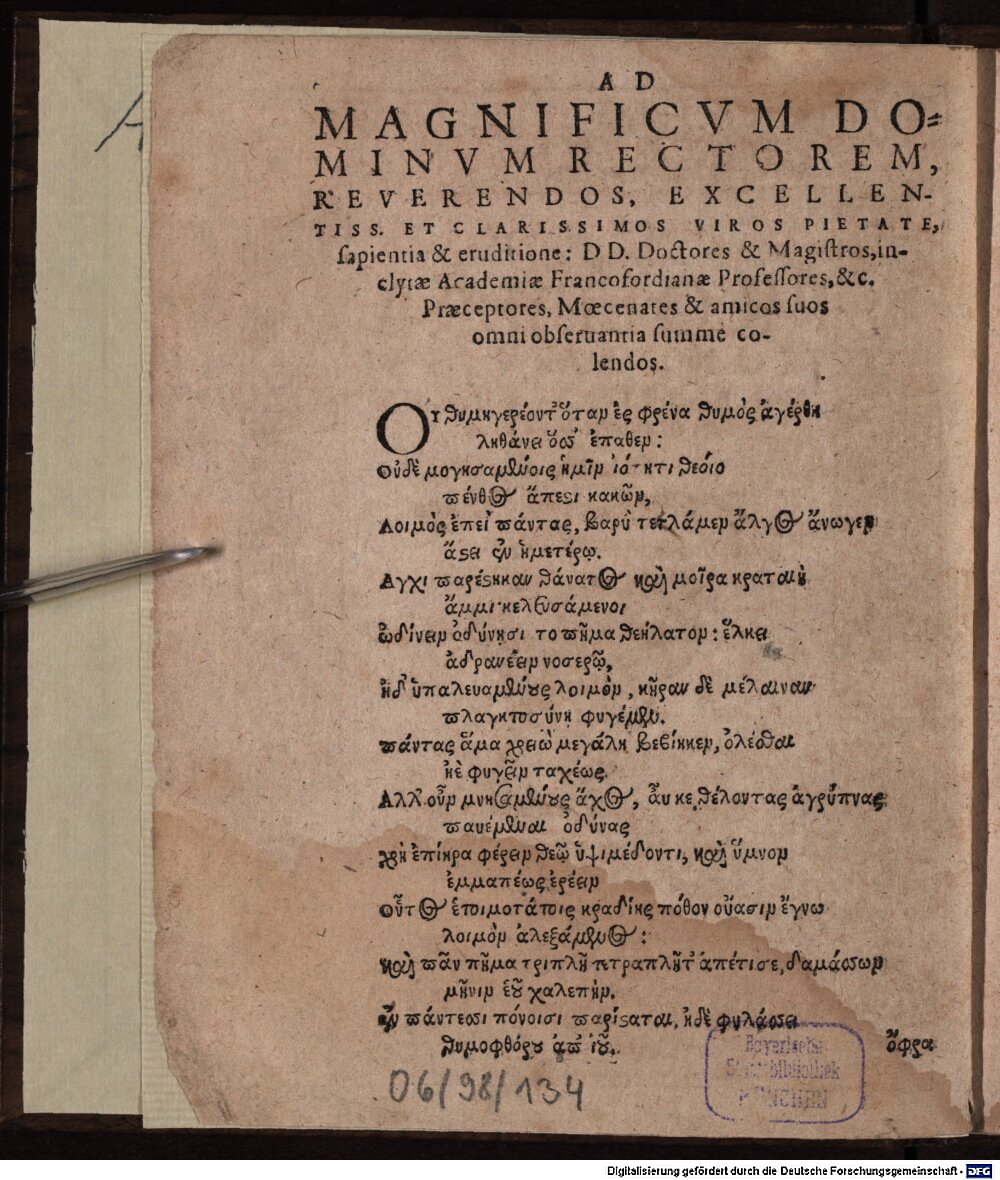 A D
MAGNIFICVM DO=
MINVM RECTOREM,
REVERENDOS, EXCELLEN-
TISS. ET CLARISSIMOS VIROS PIETATE,
sapientia & eruditione: D D. Doctores & Magistros, in-
clytæ Academiæ Francofordianæ Professores, &c.
Præceptores, Mœcenates & amicos suos
omni obseruantia summe co-
lendos.
Οἱ θυμηγερέοντ' ὅταν ἐς φρένα θυμὸς ἀγέρθη
ληθάνει ὅσσ' ἔπαθεν:
οὐδὲ μογησαμένοις ἡμῖν ἰότητι θεοῖο
πένθος ἄπεστι κακῶν,
Λοιμὸς ἐπεὶ πάντας, βαρὺ τετλάμεν ἄλγος ἄνωγεν
ἄστει ἐν ἡμετέρῳ.
Αγχι παρέστηκαν θάνατος καὶ μοῖρα κραταιὴ
ἄμμι κελευσάμενοι
ὠδίνειν ὀδύνησι το πῆμα θεήλατον: ἕλκει
ἀδρανέειν νοσερῷ,
ἠδ' ὑπαλευαμένους λοιμὸν, κῆραν δὲ μέλαιναν
πλαγκτοσύνη φυγέμεν.
πάντας ἅμα χρειὼ μεγάλη βεβίηκεν, ὀλέσθαι
ἠὲ φυγεῖν ταχέως.
Αλλ' οὖν μνησαμένους ἄχος, ἄυ κε θέλοντας ἀγρύπνας
παυέμεναι ὀδύνας
χρὴ ἐπίηρα φέρειν θεῷ ὑψιμέδοντι, καὶ ὕμνον
ἐμμαπέως ἐρέειν
οὗτος ἑτοιμοτάτοις κραδίης πόθον οὔασιν ἔγνω
λοιμὸν ἀλεξάμενος:
καὶ πᾶν πῆμα τριπλῆ τετραπλῆτ' ἀπέτισε, δαμάσσων
μῆνιν ἑοῦ χαλεπήν.
ἐν πάντεσσι πόνοισι παρίσταται, ἠδὲ φυλάσσει
θυμοφθόρου ἀπ' ἰοῦ.
ὄφρα
06/98/134
Bayerische
Staatsbibliothek
MÜNCHEN
Digitalisierung gefördert durch die Deutsche Forschungsgemeinschaft - DFG